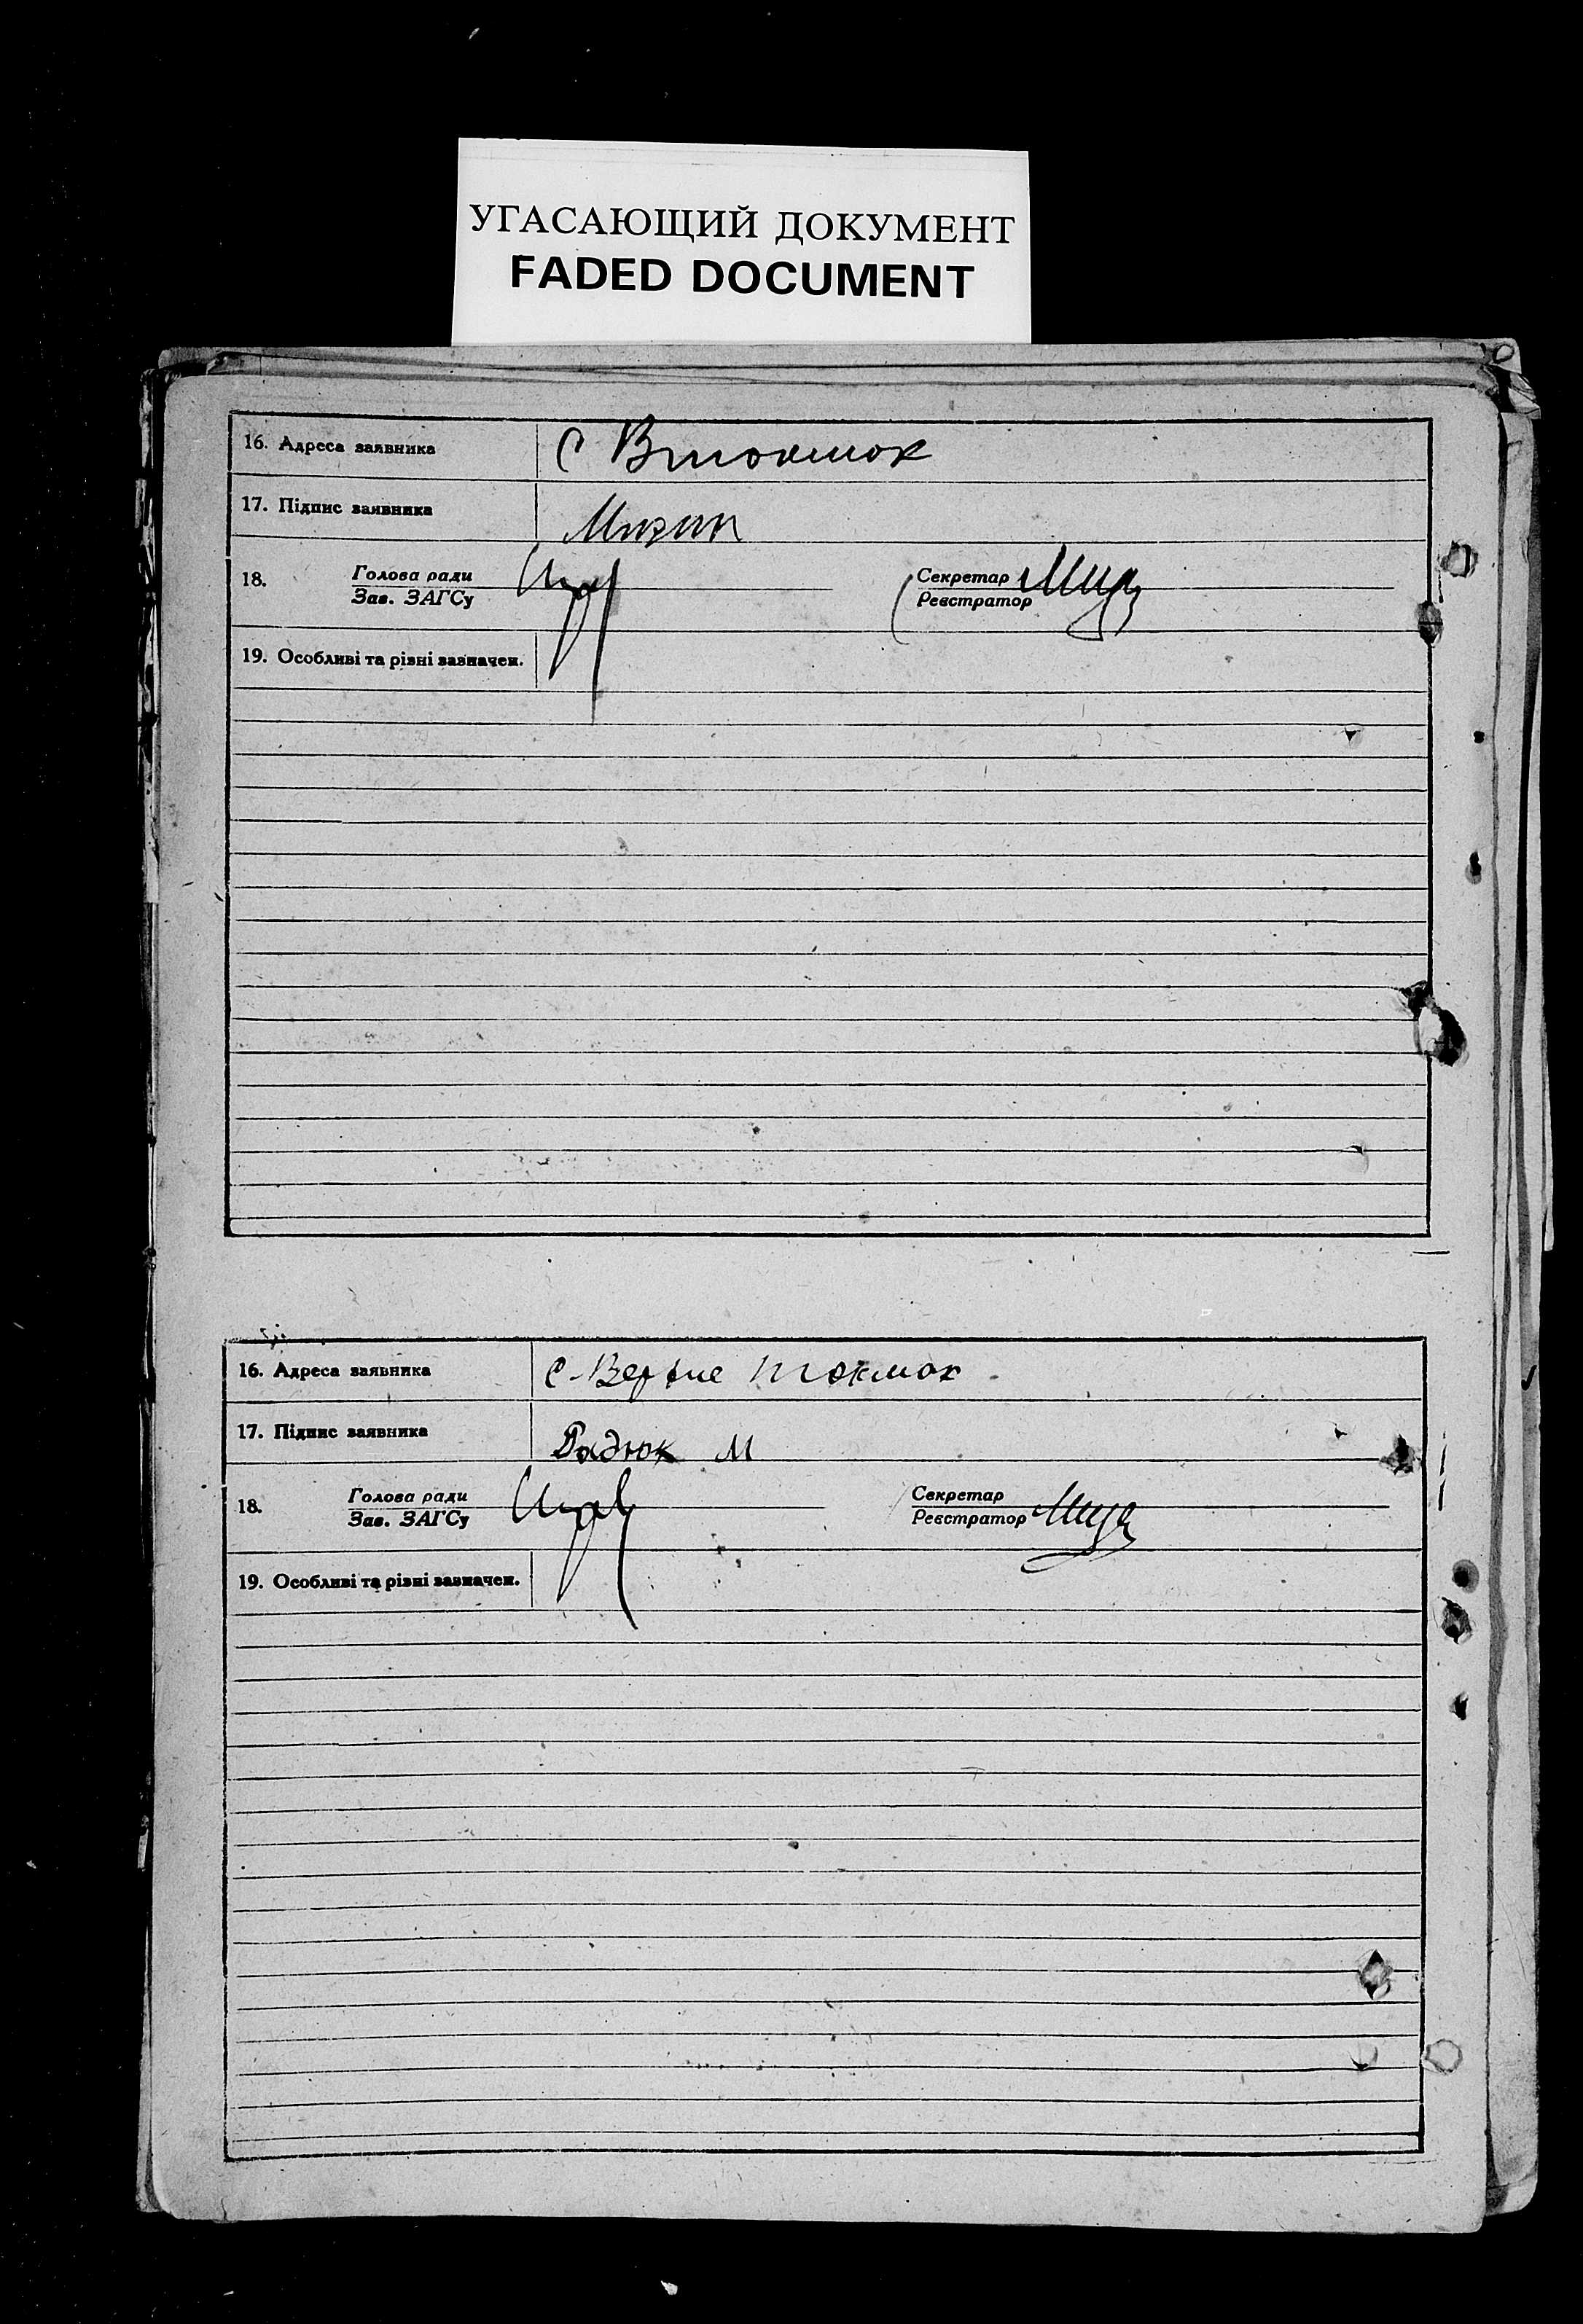 УГАСАЮЩИЙ ДОКУМЕНТ
FADED DOCUMENT
16. Адреса заявника
с Втокмок
17. Підпис заявника
18. Голова ради Секретар
Зав. ЗАГСу Реєстратор
19. Особливі та різні зазначен.
16. Адреса заявника
с-Верхне токмак
17. Підпис заявника
Радюк М
18. Голова ради Секретар
Зав. ЗАГСу Реєстратор
19. Особливі та різні зазначен.